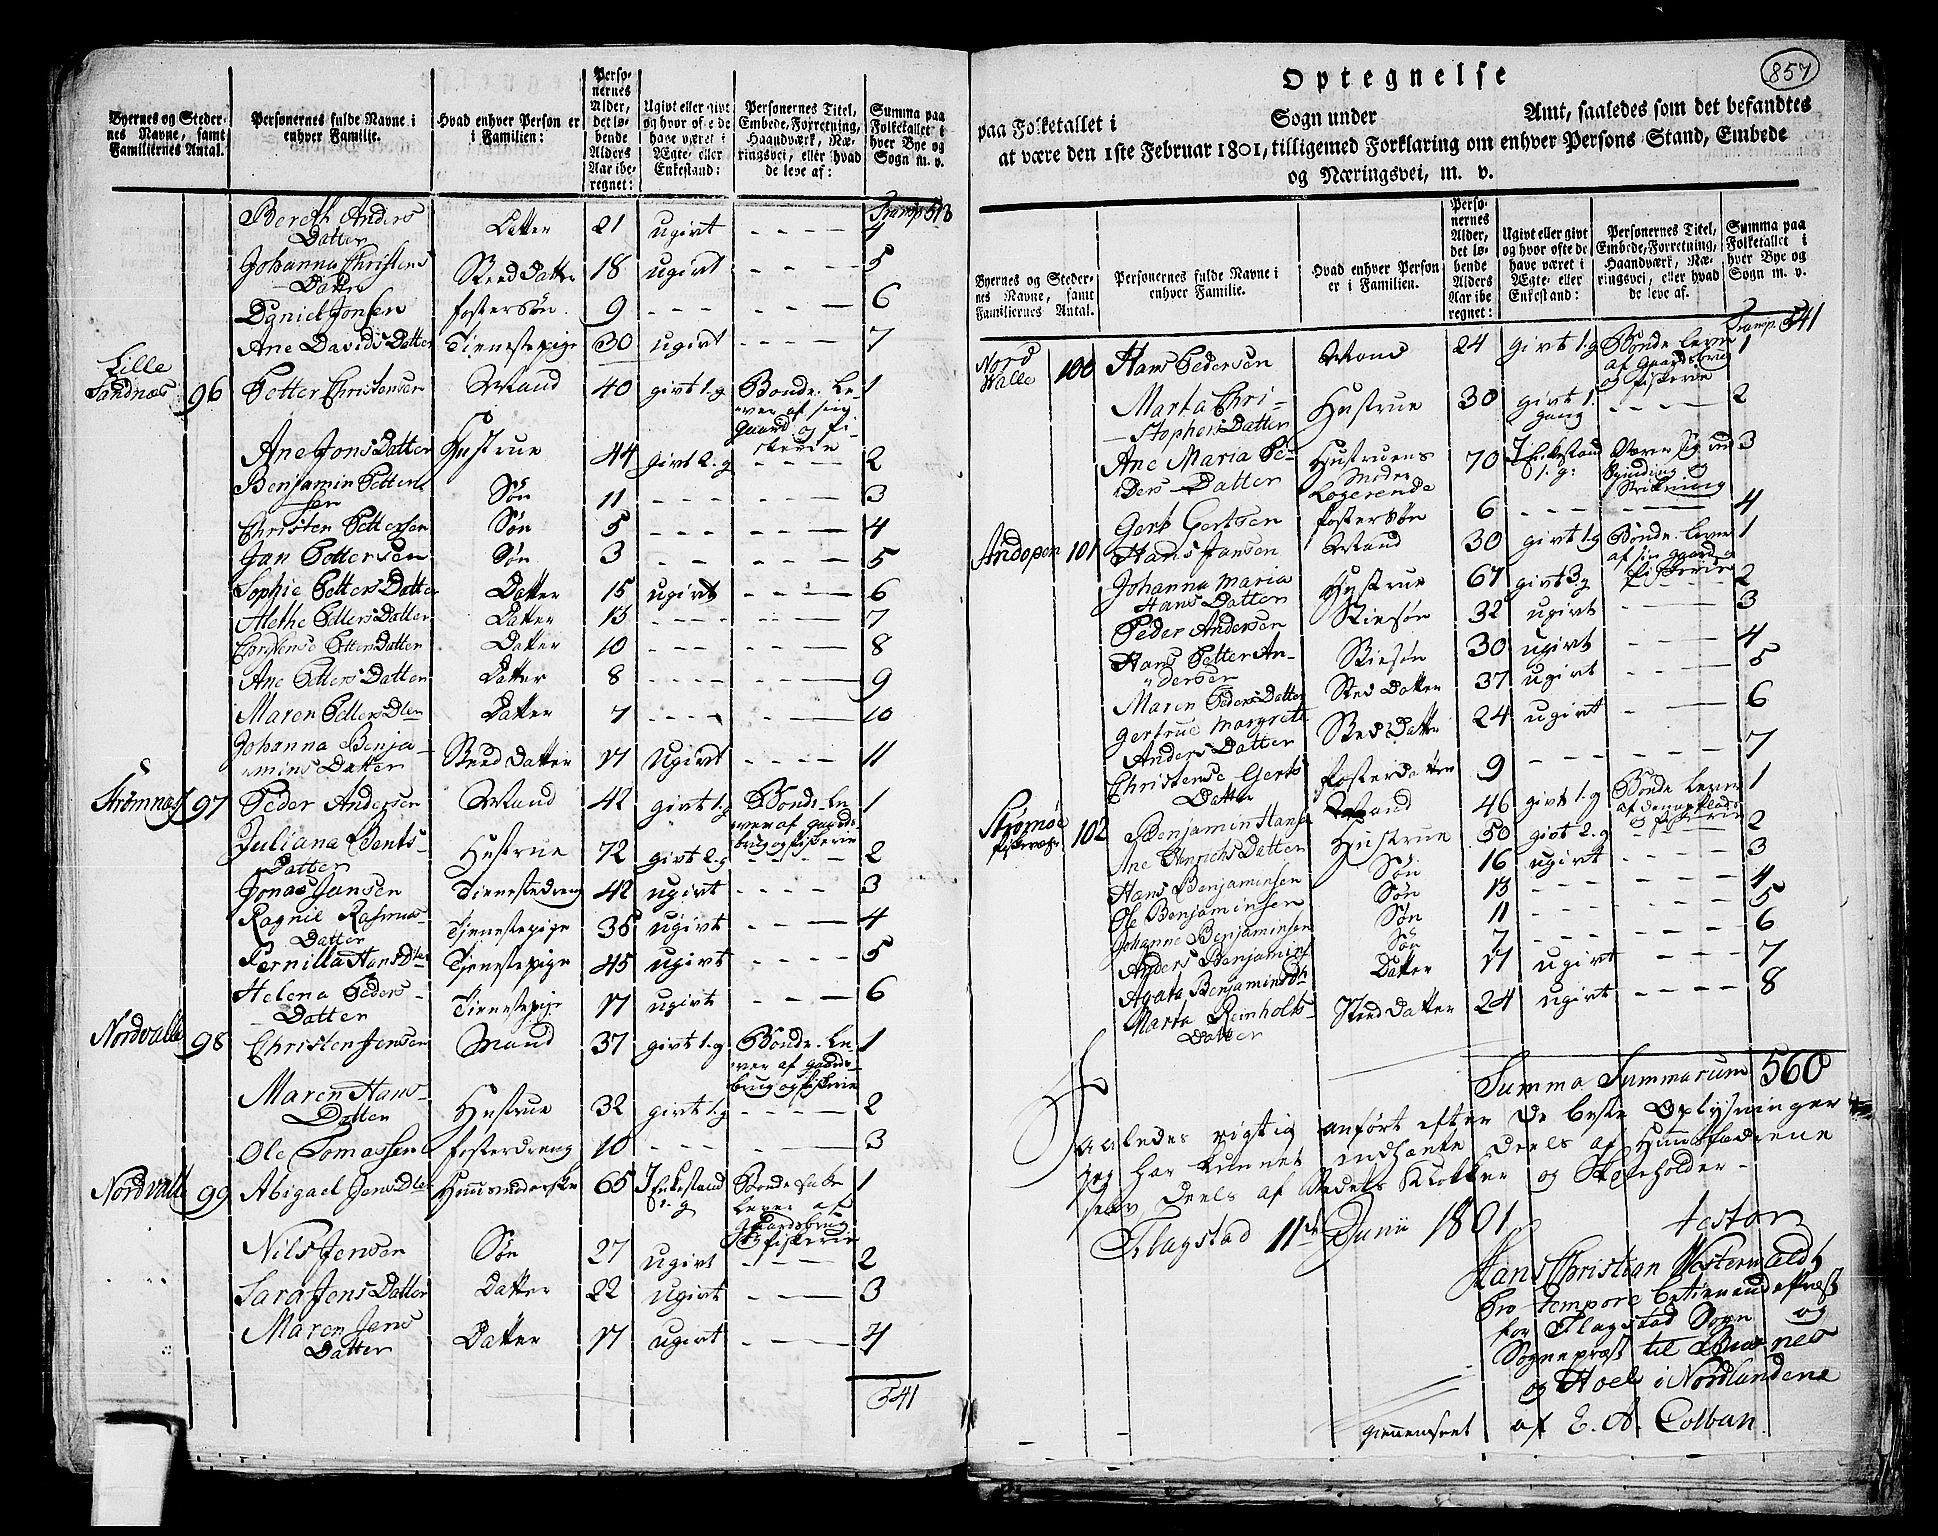 Byernes og Steder-
nes Navne, samt
Familiernes Antal.
Personernes fulde Navne i
enhver Familie.
Hvad enhver Person er
i Familien:
Perso-
nernes
Alder,
det lø-
bende
Alders
Aar ibe-
regnet:
Ugivt eller givt
og hvor ofte de
have været i
Ægte- eller
Enkestand:
Personernes Titel,
Embede, Forretning,
Haandværk, Næ-
ringsvei, eller hvad
de leve af:
Summa paa
Folketallet i
hver Bye og
Sogn m. v.
Transp 513
Bereth Anders Datter Datter 21 ugivt - - - - 4
Johanna Christens Datter Sted Datter 18 ugivt - - - - 5
Daniel Jonsen fostersøn. 9 - - - - - - 6
Ane Davids Datter Tienestepige 30 ugivt - - - - 7
Lille Sandnæs 96 Petter Christensen Mand 40 givt 1. g Bonde. Le-ver af sin gaard og fi-skerie 1
Ane Jons Datter Hustrue 44 givt 2. g - - - - 2
Benjamin Petter-sen Søn 11 - - - - - - - 3
Christen Pettersen Søn 5 - - - - - - - 4
Jan Pettersen Søn 3 - - - - - - 5
Sophie Petters Datter Datter 15 ugivt - - - - 6
Alethe Petters Datter Datter 13 - - - - - - - 7
Petters Datter Datter 10 - - - - - - - 8
Ane Petters Datter Datter 8 - - - - - - - 9
Maren Petters Dter Datter 7 - - - - - - - 10
Johanna Benja-mins Datter Sted Datter 17 Ugivt - - - - 11
Strømnæs 97 Peder Andersen Mand 42 givt 1. g Bonde. Le-ver af gaards-brug og fiskerie 1
Juliana Bents-Datter Hustrue 72 givt 2. g - - - 2
Jonas Jansen Tienestedreng 42 ugivt - - - - 3
Ragnil Rasmus-Datter Tjenestepige 36 ugivt - - - 4
Pernilla Hans Dter Tjenestepige 45 ugivt - - - - 5
Helena Peders-Datter Tienestepige 17 ugivt - - - 6
Nordvalle 98 Christen Jensen Mand 37 givt 1. g Bonde. Le-ver af gaards-brug og fiskerie 1
Maren Hans-Datter Hustrue 32 givt 1. g - - - - 2
Ole Tomassen fosterdreng 10 - - - - - 3
Nordvalle 99 Abigael Jens Dter Huusmoderske 65 I Enkestand 1. g Lever af Gaardsbrug og fiskerie 1
Nils Jensen Søn 27 ugivt - - - 2
Sara Jens Datter Datter 22 ugivt - - - - 3
Maren Jens Datter Datter 17 ugivt - - - - 4
541
857
Optegnelse
paa Folketallet i Sogn under Amt, saaledes som det befandtes
at være den 1ste Februar 1801, tilligemed Forklaring om enhver Persons Stand, Embede
og Næringsvei, m. v.
Byernes og Steder-
nes Navne, samt
Familiernes Antal.
Personernes fulde Navne i
enhver Familie.
Hvad enhver Person
er i Familien.
Perso-
nernes
Alder,
det lø-
bende
Alders
Aar ibe-
regnet:
Ugivt eller givt
og hvor ofte de
have været i
Ægte- eller
Enkestand:
Personernes Titel,
Embede, Forretning,
Haandværk, Næ-
ringsvei, eller hvad
de leve af.
Summa paa
Folketallet i
hver Bye og
Sogn m. v.
Transp. 541
Nord Walle 100 Hans Pedersen Mand 24 givt 1. g Bonde lever af Gaardsbrug og fiskerie 1
Marta Chri-stophers Datter Hustrue 30 givt 1. gang - - - - 2
Ane Maria Pe-ders-Datter Hustruens Moder Logerende 70 I Enkestand 1. g: Nærer sig ved Spinding og Strikning 3
Gert Gertsen fostersøn 6 - - - - - - - 4
Andopen 101 Hans Jansen Mand 30 givt 1. g Bonde. lever af sin gaard og fiskerie 1
Johanna Maria Hans Datter Hustrue 67 givt 3 g 2
Peder Andersen Stifsøn 32 ugivt - - - 3
Hans Petter An-dersen Stifsøn 30 ugivt - - - 4
Maren Peders Datter Sted Datter 37 ugivt - - - 5
Gertrue Margrete Anders Datter Sted Datter 24 ugivt - - - 6
Christense Gerts Datter fosterdatter 9 - - - - - - 7
Strømøe fiskevær 102 Benjamin Hansen Mand 46 givt 1. g Bonde Lever af fiskerie 1
Ane Hinrichs Datter Hustrue 50 givt 2. g - - - - 2
Hans Benjaminsen Søn 16 ugivt - - - - 3
Ole Benjaminsen Søn 13 - - - - - - - 4
Johanne Benjaminsen Søn 11 - - - - - - - 5
Anders Benjamins Søn 7 - - - - - - - 6
Agata Benjamins Dtr Datter 17 ugivt - - - - 7
Marta Reinholts-Datter Sted Datter 24 ugivt - - - - 8
Summa Summarum 560
Saaledes rigtig anført efter de beste Oplysninger
jeg har kunnet indhente deels af Huusfædrene
selv deels af Stedets Klokker og Skoleholder-
Flagstad 11te Junii 1801 testor
Hans Christian Westerwaldt
pro tempore betienende Præst
for Flagstad Sogn og
Sognepræst til Buxnes
og Hoel i Nordlandene
giennemseet af E. A. Colban